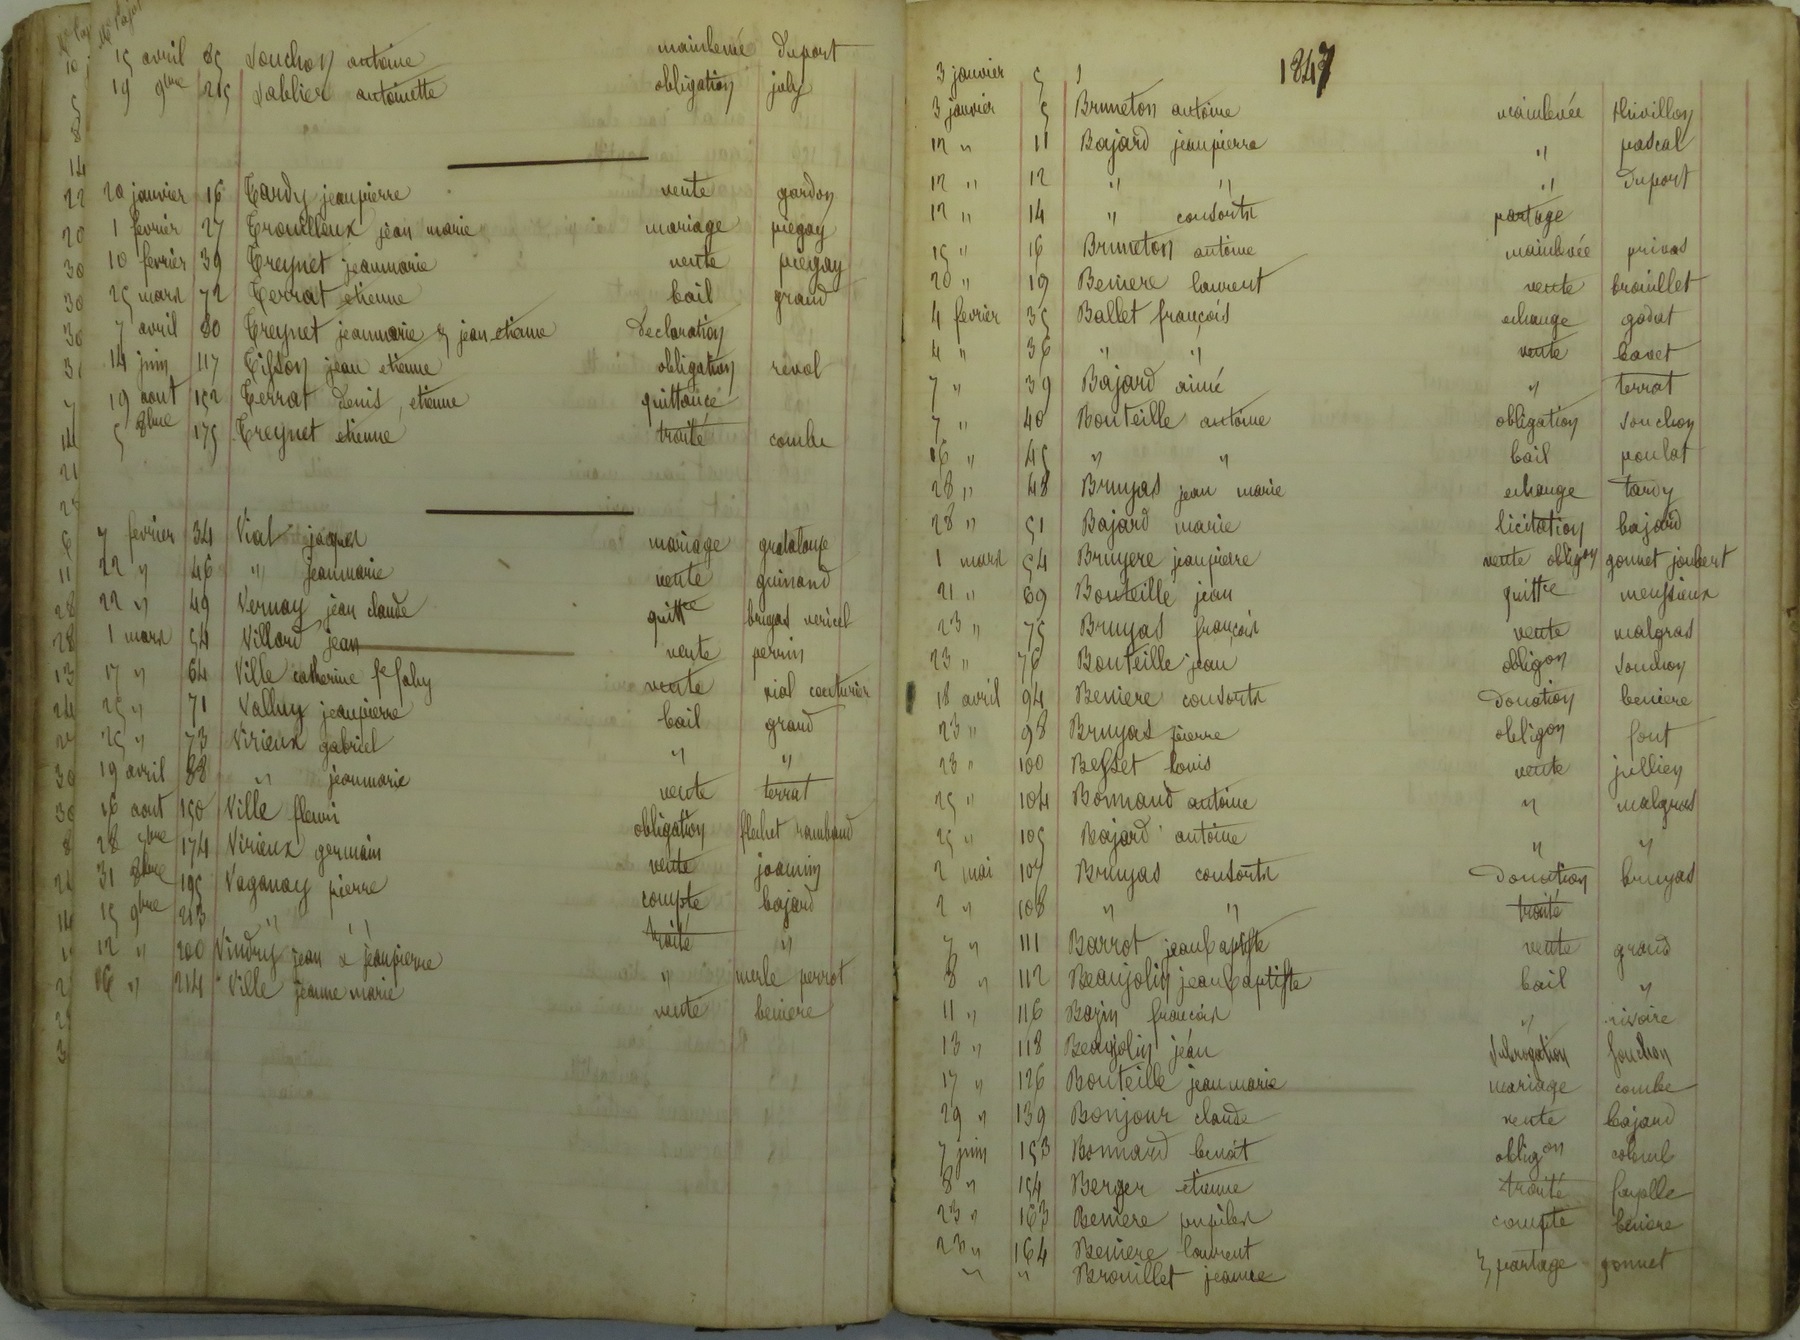 15 avril 85 Souchon antoine mainlevée duport
19 9bre 215 Sablier antoinette obligation joly
20 janvier 16 Tardy jeanpierre vente gardon
1 fevrier 27 Trouilleux jean marie mariage piegay
10 fevrier 39 Treynet jeanmarie vente piegay
25 mars 72 Terrat etienne bail grand
7 avril 80 Treynet jeanmarie & jean etienne declaration
14 juin 117 Tisson jean etienne obligation revol
19 aout 152 Terrat denis, etienne quittance
5 8bre 175 Treynet etienne traité combe
7 fevrier 34 Vial jacques mariage grataloup
22 " 46 " jeanmarie vente guinand
22 " 49 Vernay jean claude quittce bruyas vericel
1 mars 54 Villard jean vente perrin
17 " 64 Ville catherine fe faby vente vial couturier
25 " 71 Valluy jeanpierre bail grand
25 " 73 Virieux gabriel " "
19 avril 88 " jeanmarie vente terrat
16 aout 150 Ville fleuri obligation flechet rambaud
28 7bre 174 Virieux germain vente joannin
31 8bre 195 Vaganay pierre compte bajard
15 9bre 213 " " traité "
12 " 200 Vindry jean & jeanpierre " merle perrot
16 " 214 Ville jeanne marie vente beniere
1847
3 janvier 5
3 janvier 5 Bruneton antoine mainlevée thivillon
12 " 11 Bajard jeanpierre " pascal
12 " 12 " " " duport
12 " 14 " consorts partage
15 " 16 Bruneton antoine mainlevée privas
20 " 19 Beniere laurent vente brouillet
4 fevrier 35 Ballet françois echange godat
4 " 36 " " vente bavet
7 " 39 Bajard aimé " terrat
7 " 40 Bouteille antoine obligation souchon
16 " 45 " " bail poulat
28 " 48 Bruyas jean marie echange tardy
28 " 51 Bajard marie licitation bajard
1 mars 54 Bruyere jeanpierre vente obligon gonnet joubert
21 " 69 Bouteille jean quittce messieux
23 " 75 Bruyas françois vente malgras
23 " 76 Bouteille jean obligon souchon
18 avril 94 Beniere consorts donation beniere
23 " 98 Bruyas pierre obligon font
23 " 100 Besset louis vente jullien
25 " 104 Bonnand antoine " malgras
25 " 105 Bajard antoine " "
2 mai 107 Bruyas consorts donation bruyas
2 " 108 " " traité
7 " 111 Barrot jeanbaptiste vente grand
8 " 112 Beaujolin jeanbaptiste bail "
11 " 116 Bazin françois " rivoire
13 " 118 Beaujolin jean subrogation souchon
17 " 126 Bouteille jeanmarie mariage combe
29 " 139 Bonjour claude vente bajard
7 juin 153 Bonnard benoit obligon
8 " 154 Berger etienne traité fayolle
23 " 163 Beniere pupiles compte beniere
23 " 164 Beniere laurent & partage gonnet
" " Brouillet jeanne